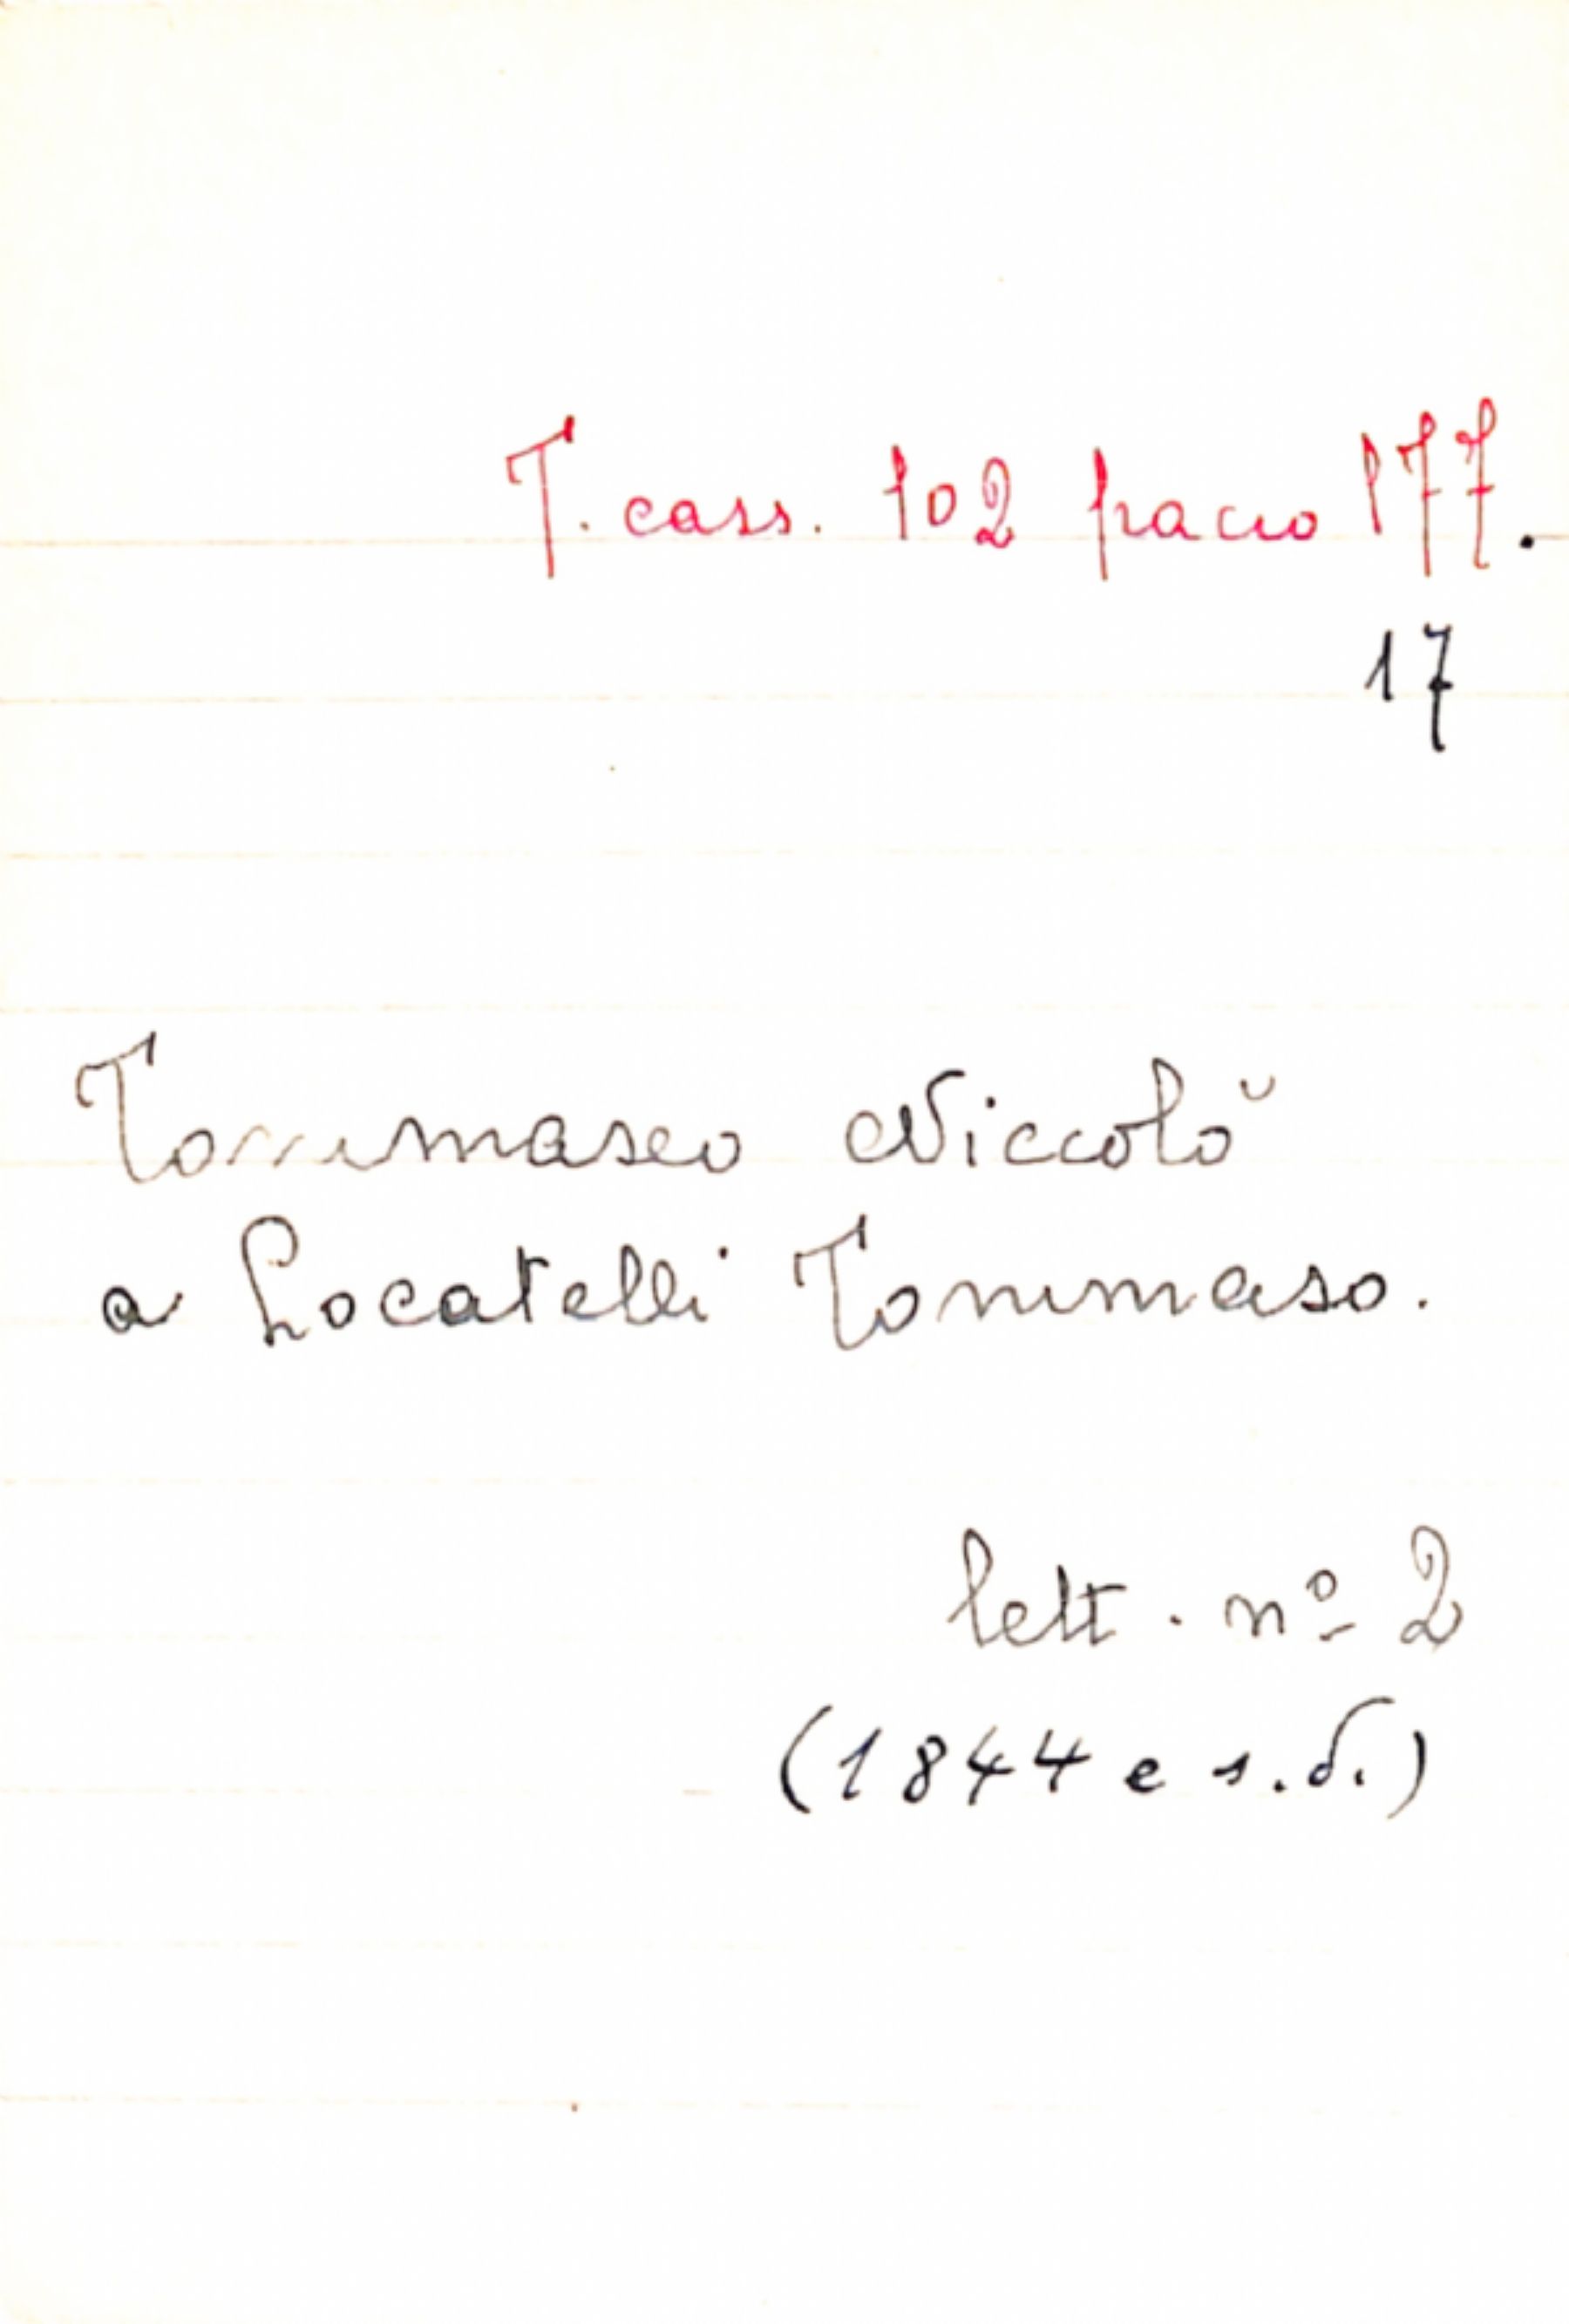 T. cass. 102 pacco 177.
17
Tommaseo Niccolò
a Locatelli Tommaso.
lett. nº 2
(1844 e s.d.)